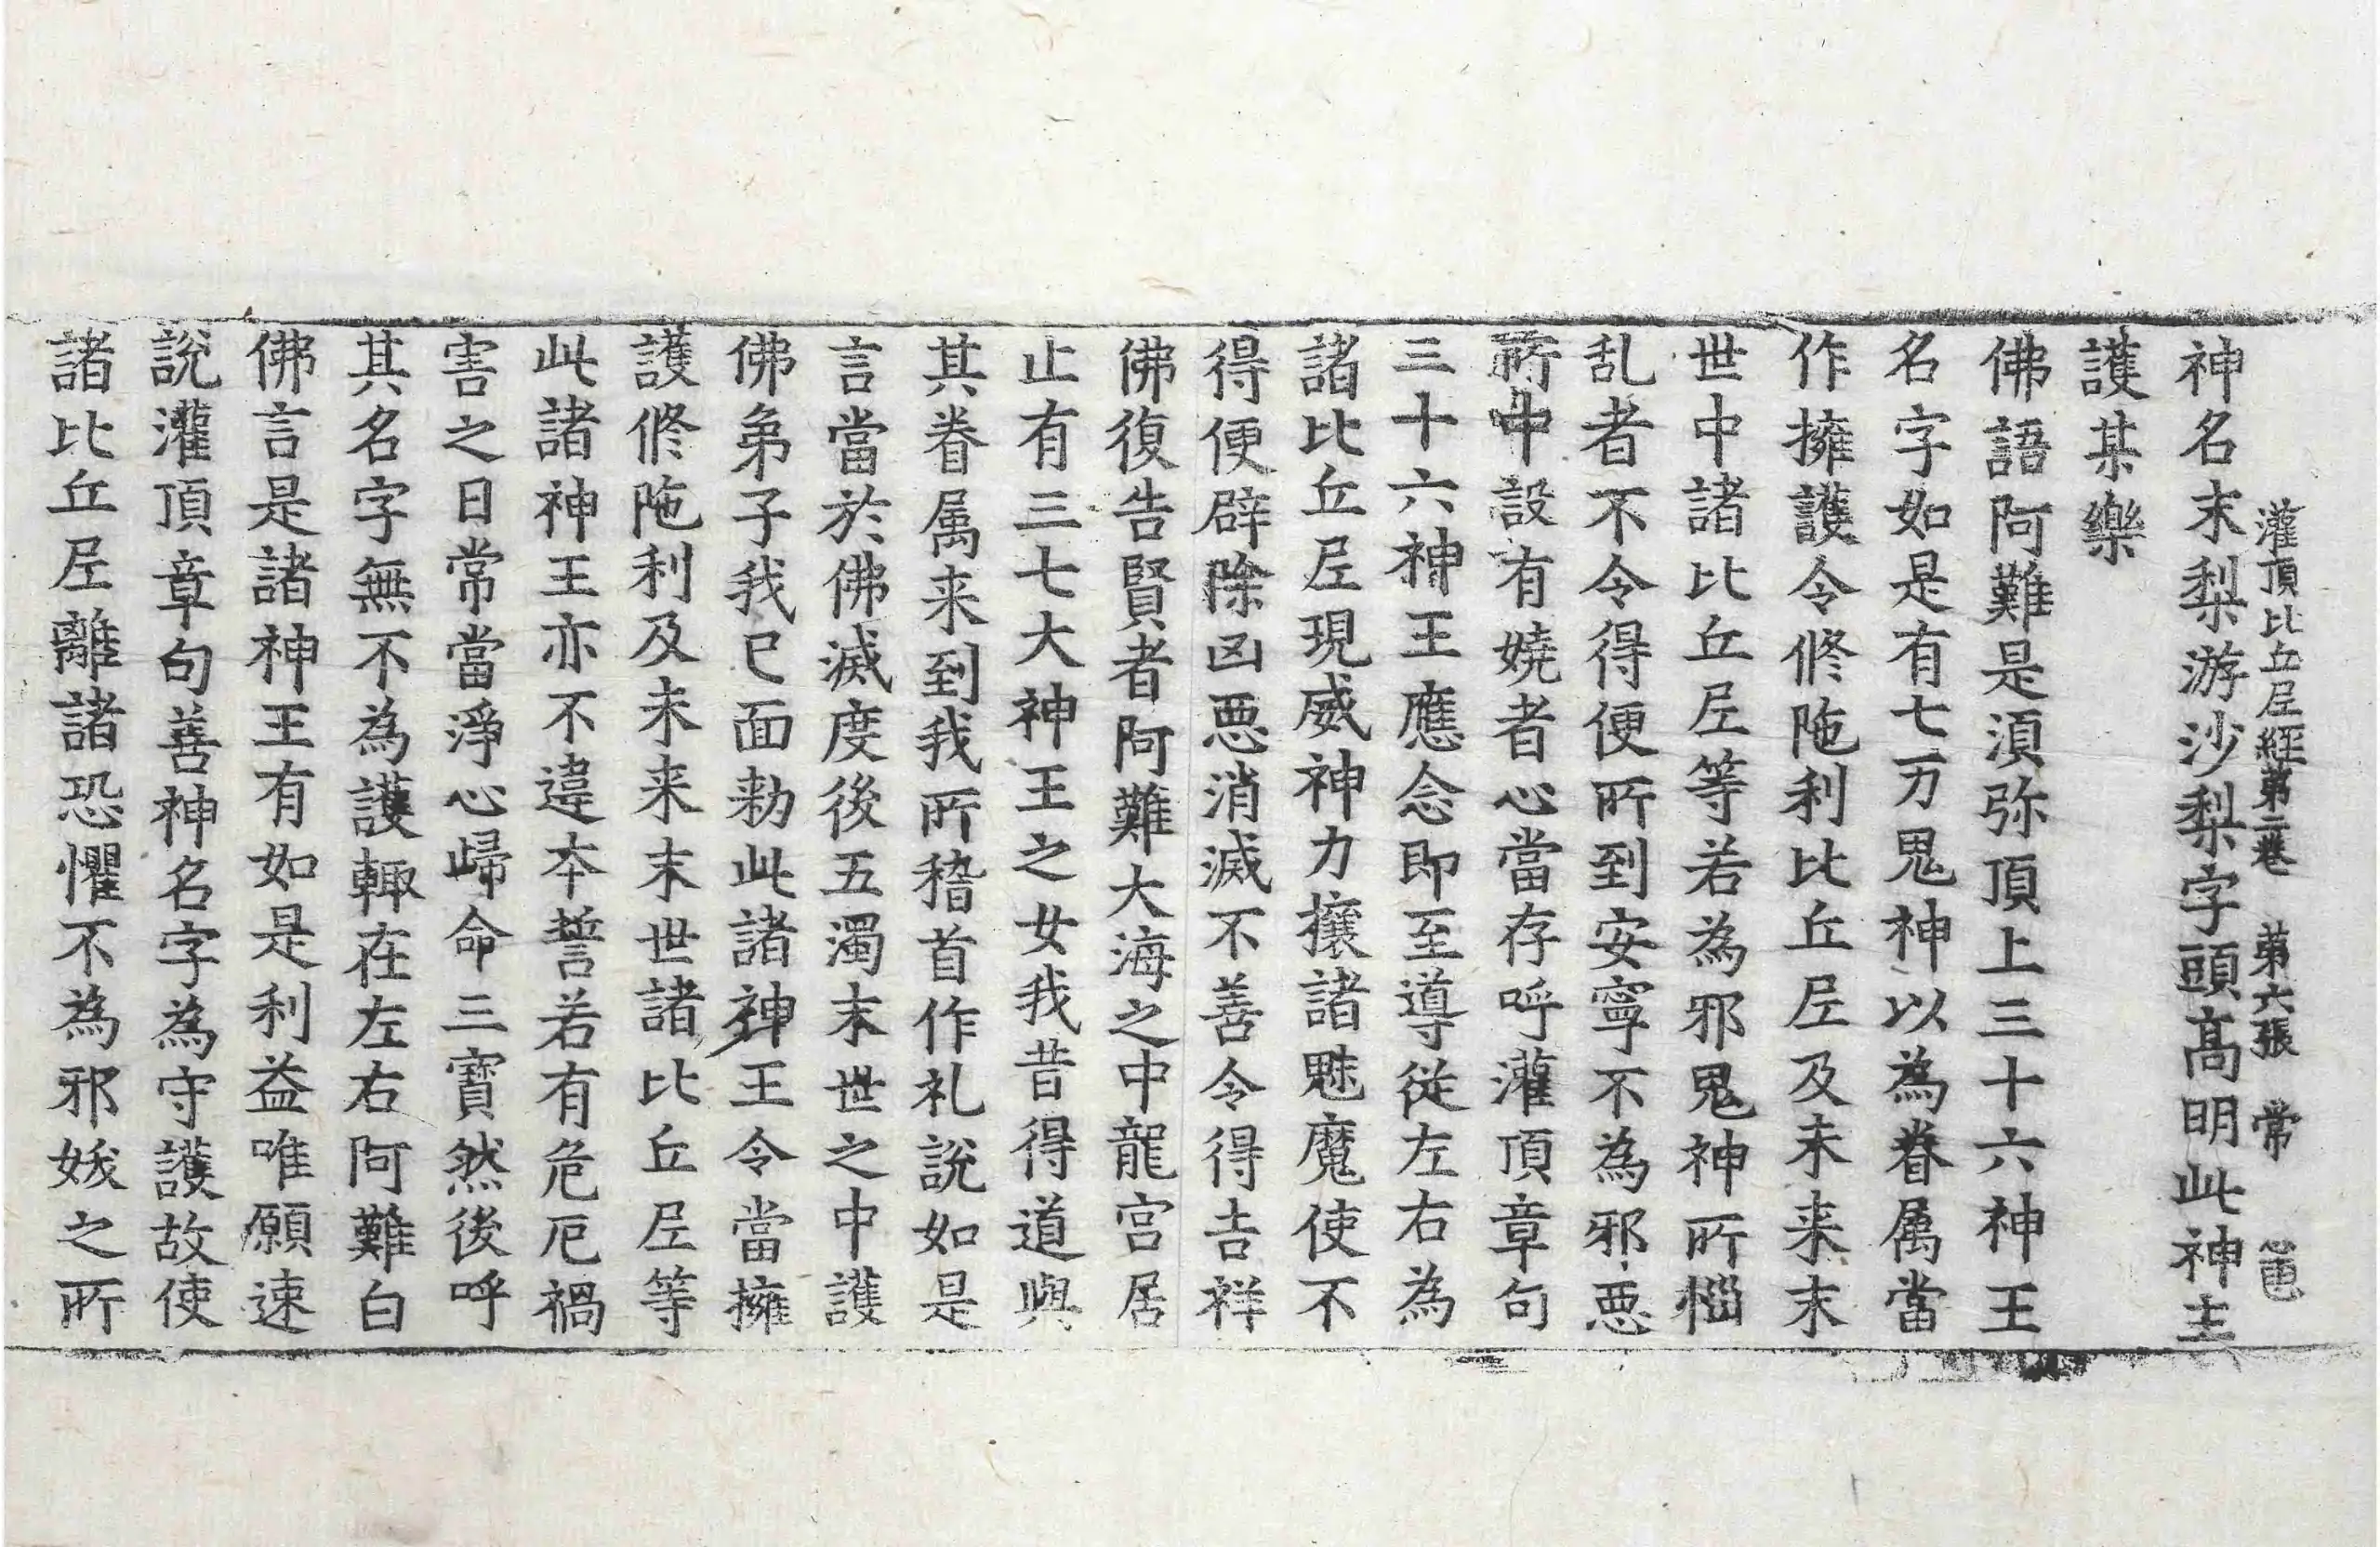 灌頂比丘𡰱經第二卷　第六張　常
神名末梨游沙梨字頭髙明此神主
護某樂
佛語阿難是湏弥頂上三十六神王
名字如是有七万鬼神以為眷属當
作擁護令修陁利比丘𡰱及未来末
世中諸比丘𡰱等若為邪鬼神所惱
乱者不令得便所到安寧不為邪惡
所中設有嬈者心當存呼灌頂章句
三十六神王應念即至導從左右為
諸比丘𡰱現威神力攘諸魅魔使不
得便辟除凶惡消滅不善令得吉祥
佛復告賢者阿難大海之中龍宮居
止有三七大神王之女我昔得道與
其眷属来到我所稽首作礼說如是
言當於佛滅度後五濁末世之中護
佛弟子我已面勑此諸神王令當擁
護修陁利及未来末世諸比丘𡰱等
此諸神王亦不違本誓若有危厄禍
害之日常當淨心歸命三寶然後呼
其名字無不為護輙在左右阿難白
佛言是諸神王有如是利益唯願速
說灌頂章句善神名字為守護故使
諸比丘𡰱離諸恐懼不為邪媙之所